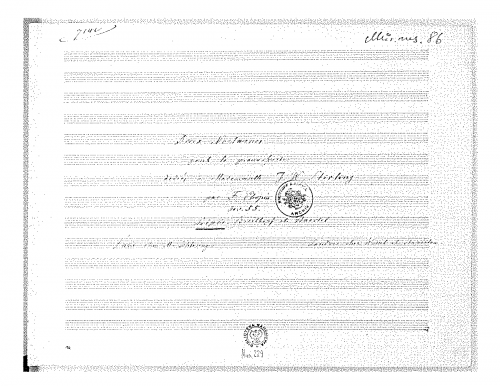 7140
Mus. aus. 86
Deux Nocturnes
pour le pianoforte
dediés à Mademoiselle J. W. Stirling
par F. Chopin
Leipsic Breitkopf et Haertel
Paris chez M. Schlesinger Londres chez Wessel et
Mus. 229